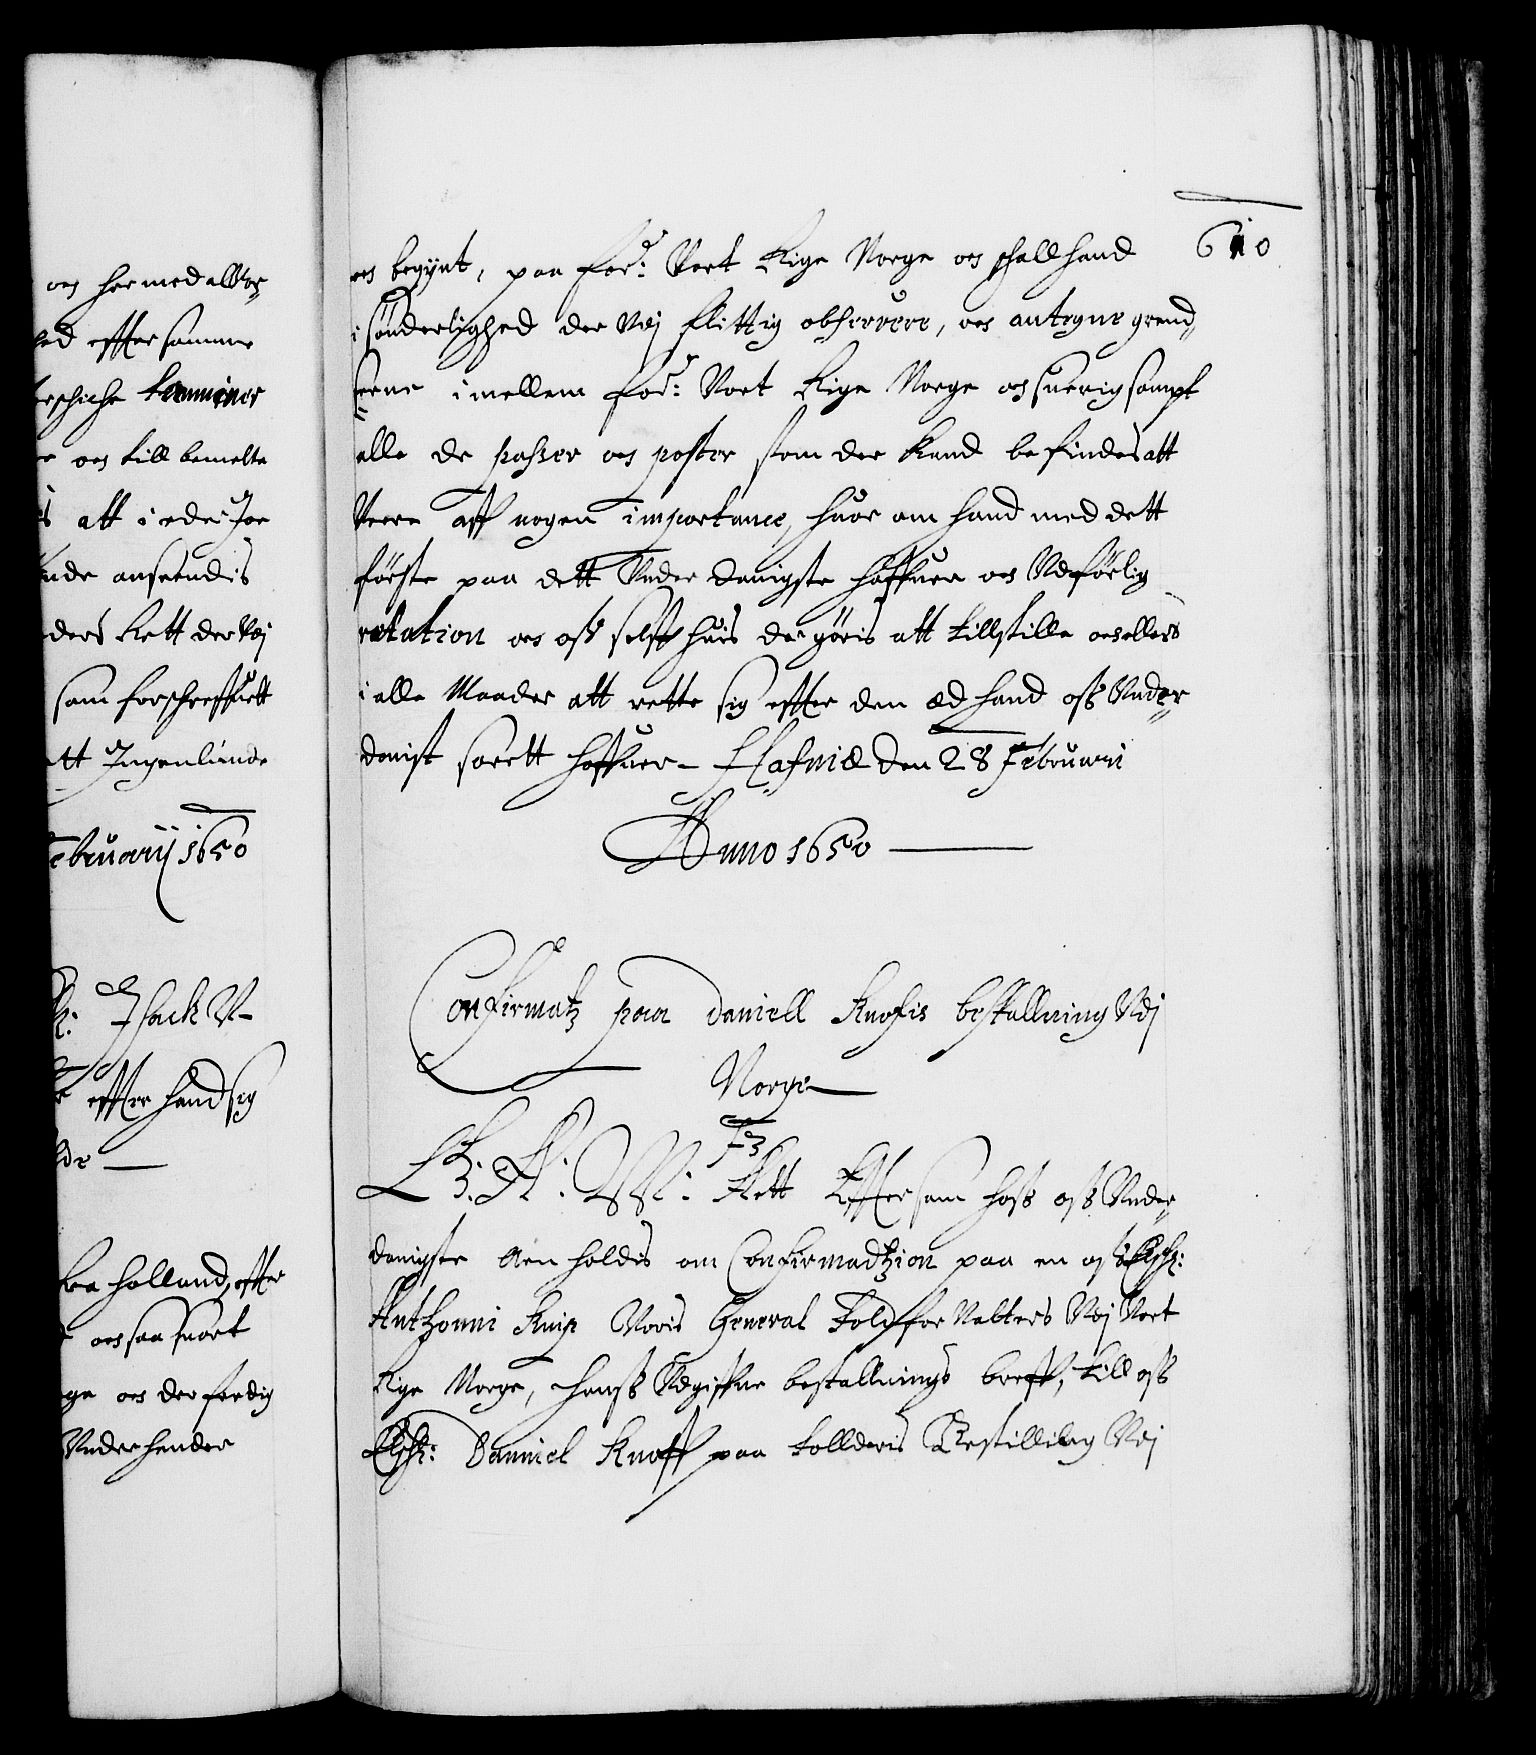 och her med alfvor
effter samme
terminer
och till bemelte
att i eder Jor
anseendis
ders Rett der Vdj
som forschreffuett
att Ingenlunde
Februarij 1650
Isack V-
effter hand sig
fra Holland, effter
och saa snart
och der ferdig
Vnderhender
610
och begynt, paa ford: Vort Rige Norge och schall hand
i sønderlighed der Vdj flittig observere, och antegne grend„
serne imellem ford: Vort Rige Norge och Suerig sampt
alle de passer och poster som der kand befindes att
Were aff nogen importance, huor om hand med dett
første paa dett Vnderdanigste haffuer och Vdførlig
relation och oss selff huis der gøris att tillstille och ellers
i alle Maader att rette sig effter den æd hand oss Vnder„
danigst soeret haffuer. Hafniæ den 28 Februarii
Anno 1650
Confirmatz paa Daniell Knofis bestallning Vdj
Norge
F3
C: F: W: G: A: Effter som hoss oss Vnder„
danigste Anholdis om Confirmadtzion paa en oss Elsk:
Anthonni Knip Voris General Toldforvalters Vdj Vort
Rige Norge, hanss Vdgiffne bestallnings breff, till oss
Elsk: Danniel Knoff paa tollderis Bestilling Vdj